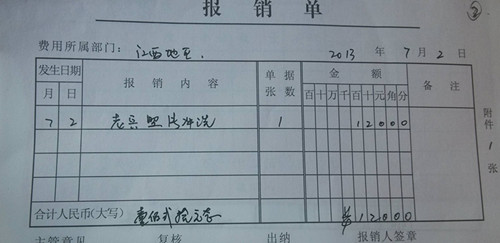 报销单
②
费用所属部门: 江西地王. 2013 年 7 月 2 日
发生日期 报销内容 单据张数 金额 备注
月 日 百 十 万 千 百 十 元 角 分
7 2 老兵照片冲洗 1 1 2 0 0 0
附件 1 张
合计人民币(大写) 壹佰贰拾元零 ¥ 1 2 0 0 0
主管意见 复核 出纳 报销人签章